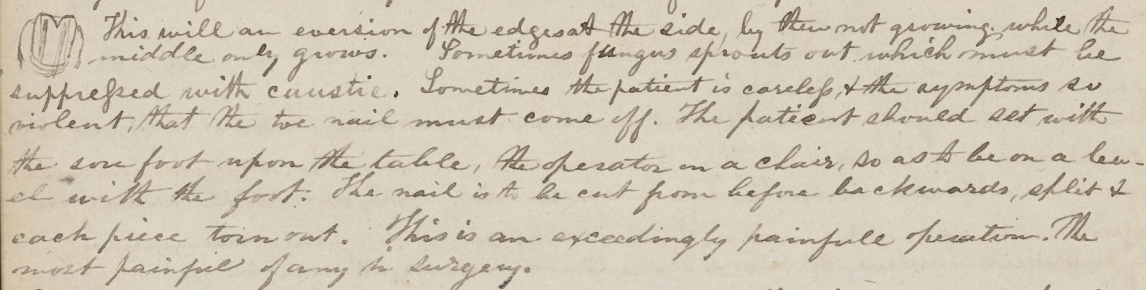 This will an eversion of the edges at the side, by their not growing, while the
middle only grows. Sometimes fungus sprouts out which must be
suppressed with caustic. Sometimes the patient is careless, & the symptoms so
violent, that the toe nail must come off. The patient should set with
the sore foot upon the table, the operator in a chair, so as to be on a lev-
el with the foot. The nail is to be cut from before backwards, split &
each piece torn out. This is an exceedingly painfull operation. The
most painful of any in surgery.